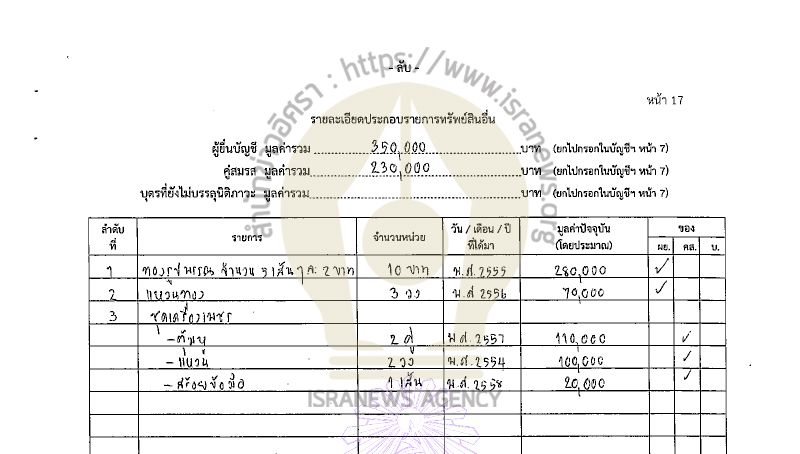 - ลับ -
หน้า 17
รายละเอียดประกอบรายการทรัพย์สินอื่น
ผู้ยื่นบัญชี มูลค่ารวม 350,000 บาท (ยกไปกรอกในบัญชีฯ หน้า 7)
คู่สมรส มูลค่ารวม 230,000 บาท (ยกไปกรอกในบัญชีฯ หน้า 7)
บุตรที่ยังไม่บรรลุนิติภาวะ มูลค่ารวม บาท (ยกไปกรอกในบัญชีฯ หน้า 7)
ลำดับที่ รายการ จำนวนหน่วย วัน / เดือน / ปี ที่ได้มา มูลค่าปัจจุบัน (โดยประมาณ) ของ
ผย. คส. บ.
1 ทองรูปพรรณ จำนวน 5 เส้น ๆ ละ 2 บาท 10 บาท พ.ศ. 2555 280,000 ✓
2 แหวนทอง 3 วง พ.ศ 2556 70,000 ✓
3 ชุดเครื่องเพชร
- ตุ้มหู 2 คู่ พ.ศ. 2557 110,000 ✓
- แหวน 2 วง พ.ศ. 2554 100,000 ✓
- สร้อยข้อมือ 1 เส้น พ.ศ. 2558 20,000 ✓
สำนักข่าวอิศรา : https://www.isranews.org
ISRANEWS AGENCY